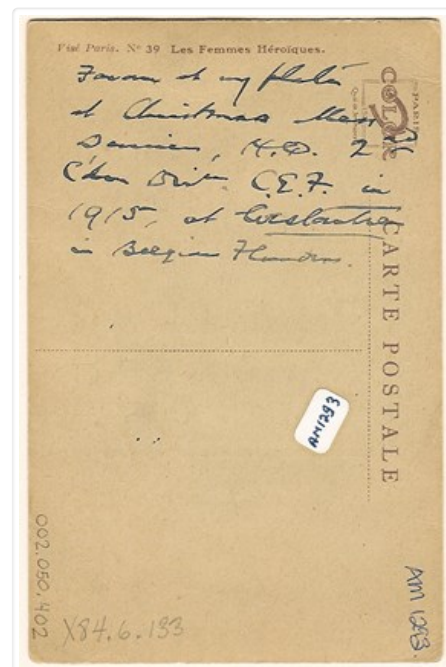 Visé Paris. Nº 39 Les Femmes Héroïques.
Favour at my plate
at Christmas Mess
H.Q. 2
Cdn Divn C.E.F. in
1915, at
in Belgian Flanders.
COLOR
PARIS
CARTE POSTALE
AM1293
002.050.402
X84.6.133
AM 1293.